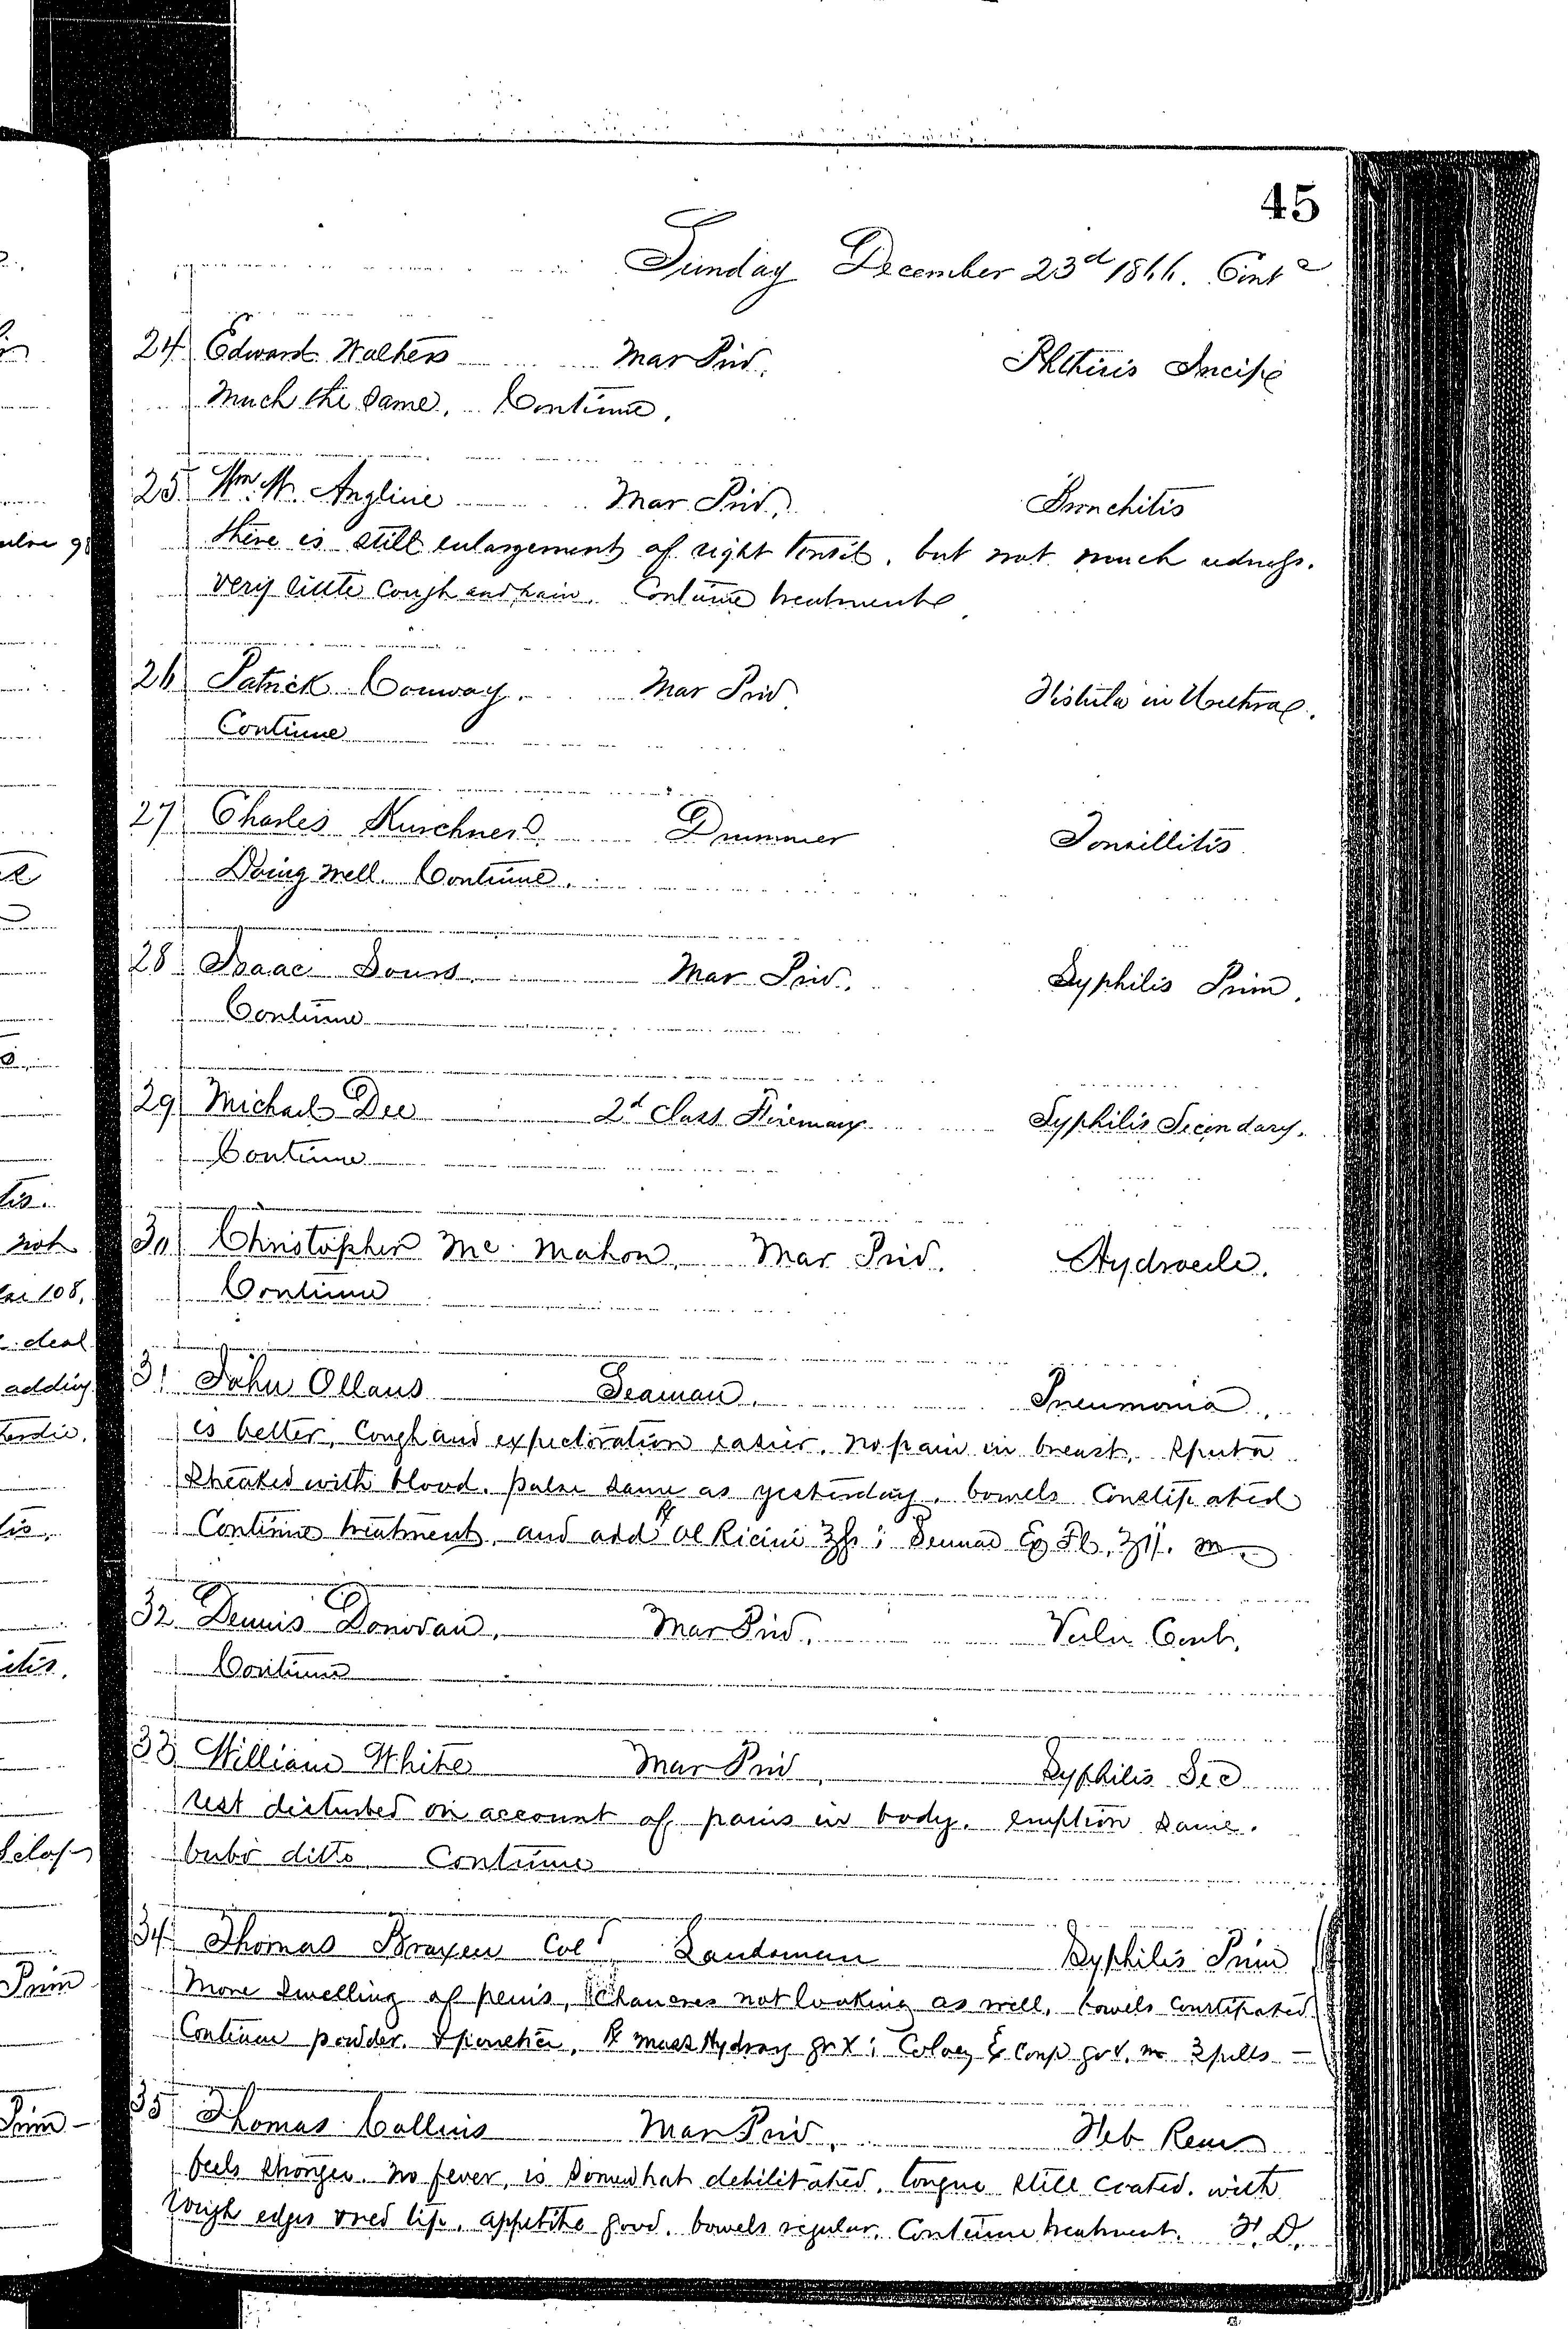 45
Sunday December 23d 1866. Contd
24 Edward Walters Mar Priv. Phthisis Incip
Much the same. Continue.
25 Wm. W. Angline Mar Priv. Bronchitis
there is still enlargement of right tonsil, but not much redness.
very little cough and pain. Continue treatment
26 Patrick Conway. Mar Priv. Fistula in Urethra.
Continue
27 Charles Kurschner Drummer Tonsillitis
Doing well. Continue.
28 Isaac Sours Mar Priv. Syphilis Prim.
Continue
29 Michael Dee 2d Class Fireman Syphilis Secondary.
Continue
30 Christopher Mc Mahon. Mar Priv. Hydrocele.
Continue
31 John Ollaus Seaman. Pneumonia.
is better, Cough and expectoration easier. No pain in breast. Sputa
streaked with blood. pulse same as yesterday. bowels Constipated
Continue treatment and add ℞ Ol Ricini ℥ss; Sennae Ex Fl. ʒij. m
32 Dennis Donovan. Mar Priv. Vuln Cont.
Continue
33 William White Mar Priv. Syphilis Sec
rest disturbed on account of pains in body. eruption same.
bubo ditto. Continue
34 Thomas Braxen Cold. Landsman Syphilis Prim
More swelling of penis, Chancres not looking as well. bowels constipated
Continue powder. ℞ Mass Hydrarg gr X; Coloc Ex Comp gr V. m 3 pills
35 Thomas Collins Mar Priv. Feb Rem
feels stronger. no fever, is somewhat debilitated. tongue still coated. with
rough edges & red tip. appetite good. bowels regular. Continue treatment. F. D.
not
108.
deal
adding
Prim